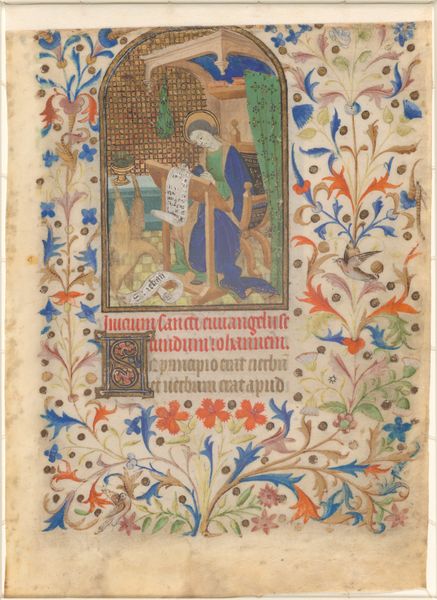 S. iehan
Inicium sancti euuangelij se
cundum iohannem.
In principio erat verbū
et verbum erat apud